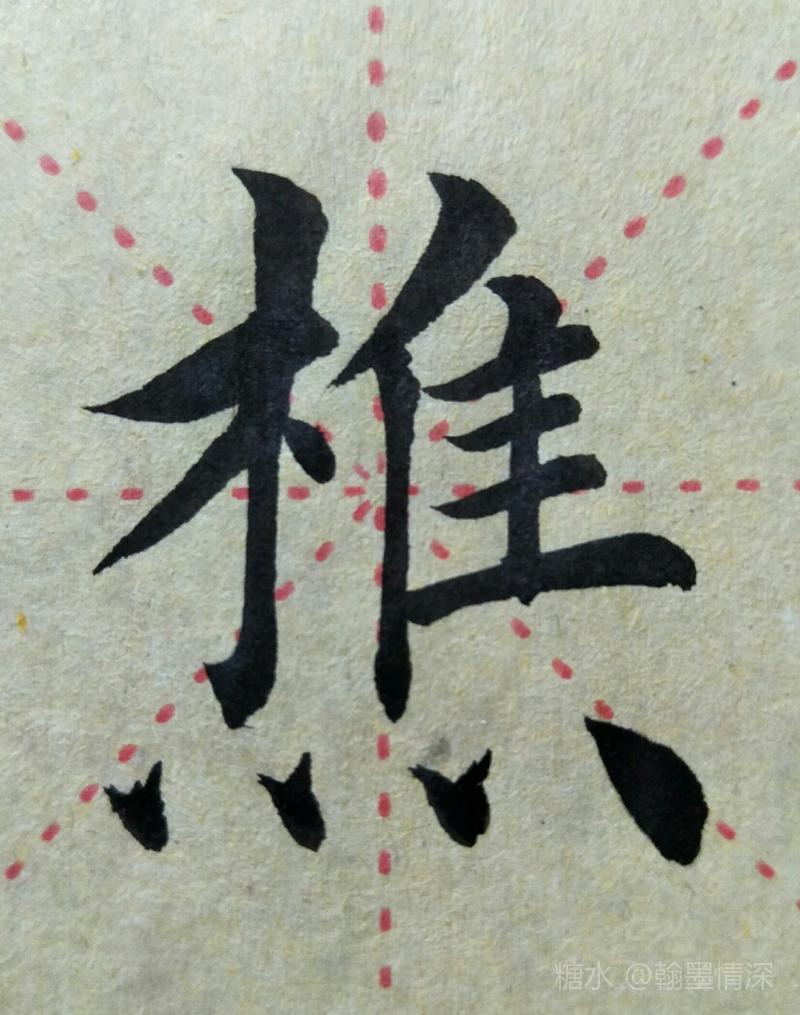 樵
糖水 @翰墨情深